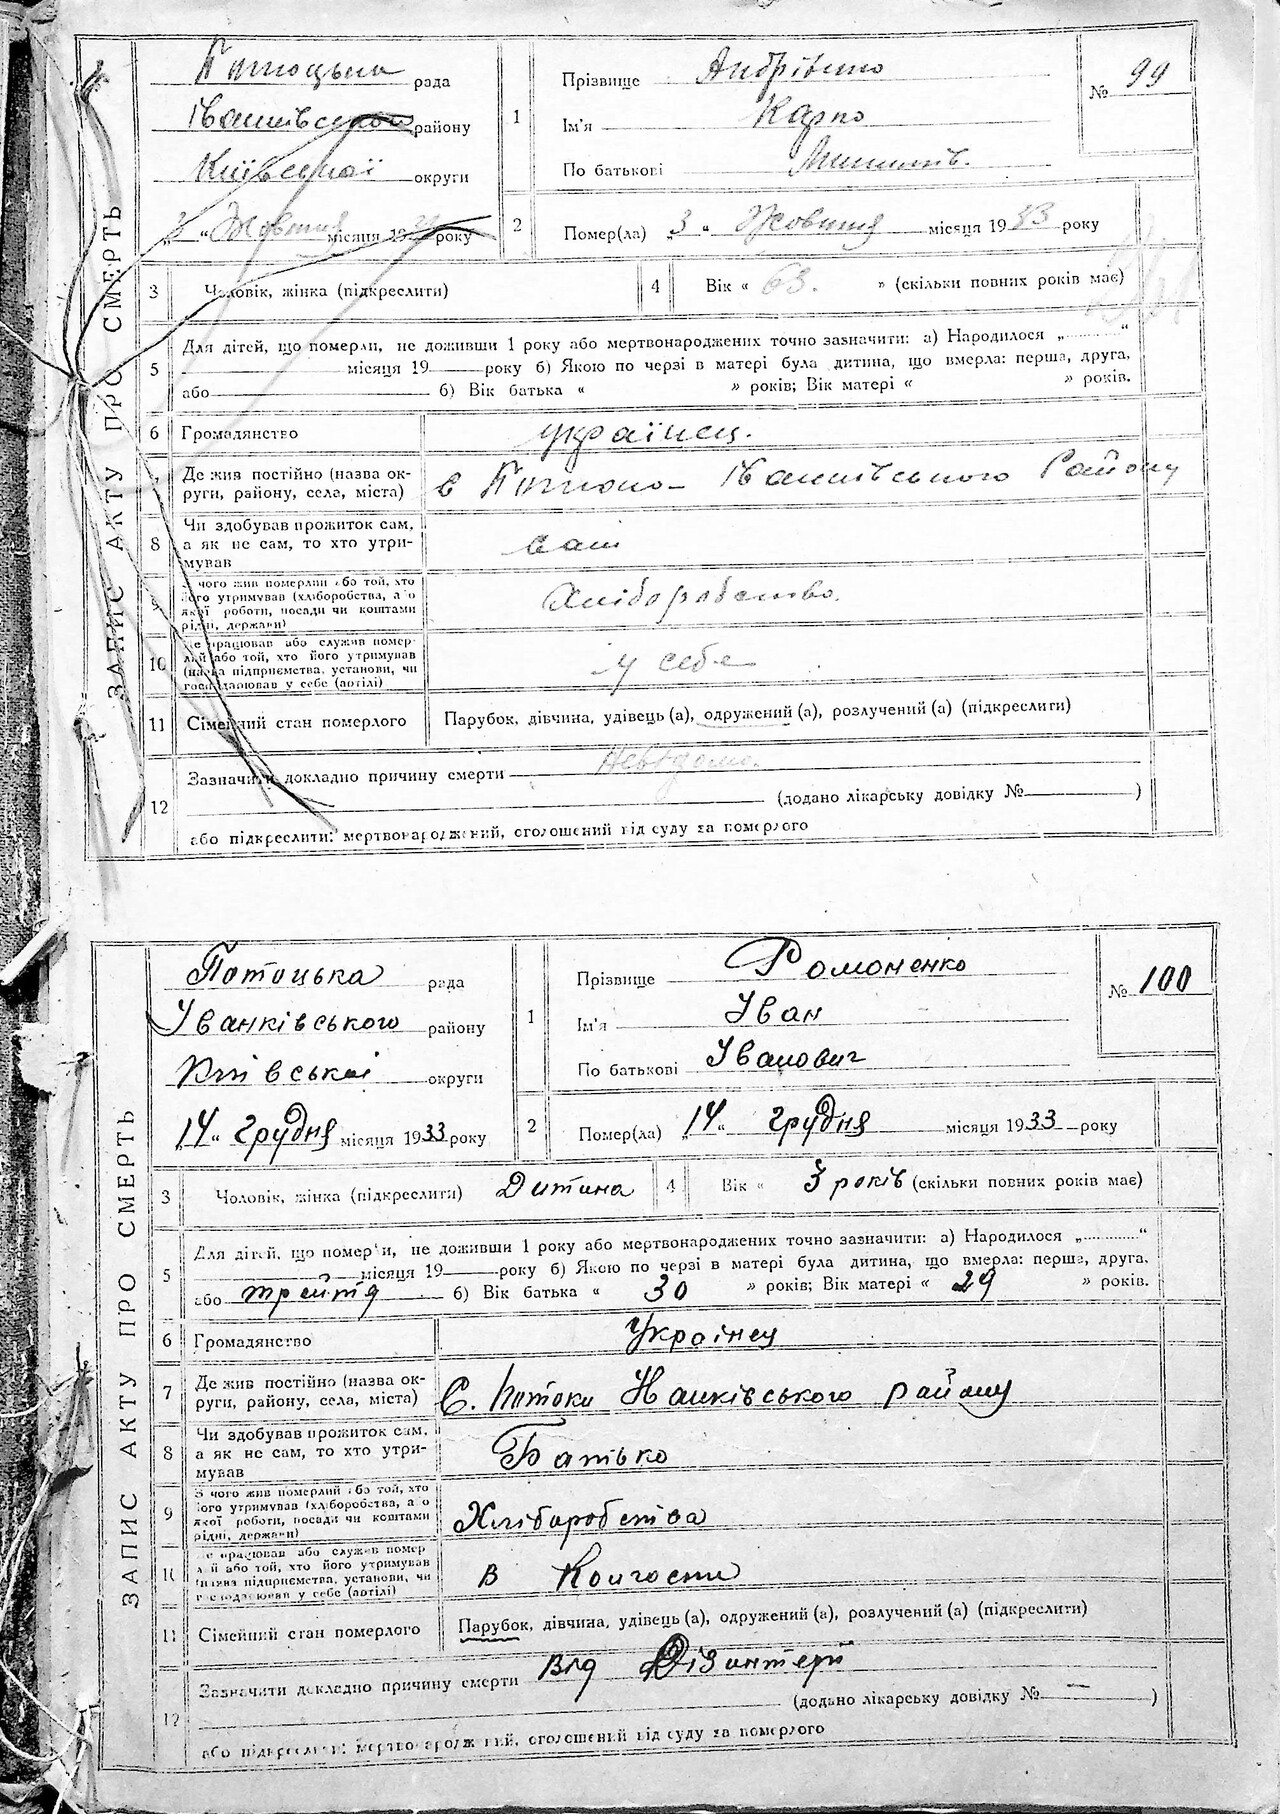 ЗАПИС АКТУ ПРО СМЕРТЬ
Потоцька рада
Іванківського району
Київської округи
„3“ Жовтня місяця 19 року
1
Прізвище
Ім'я Карпо
По батькові
№ 99
2
Помер(ла) „3“ Жовтня місяця 1933 року
3 Чоловік, жінка (підкреслити)
4 Вік « 63. » (скільки повних років має)
5
Для дітей, що померли, не доживши 1 року або мертвонароджених точно зазначити: а) Народилося „..........“
місяця 19 року б) Якою по черзі в матері була дитина, що вмерла: перша, друга,
або б) Вік батька « » років; Вік матері « » років.
6 Громадянство українец.
7 Де жив постійно (назва ок-
руги, району, села, міста)
в Іванківського Району
8 Чи здобував прожиток сам,
а як не сам, то хто утри-
мував
сам
9 З чого жив померлий або той, хто
його утримував (хліборобства, або
якої роботи, посади чи коштами
рідні, держави)
Хліборобство.
10 Де працював або служив помер-
лий або той, хто його утримував
(назва підприємства, установи, чи
господарював у себе (артілі)
у себе
11 Сімейний стан померлого Парубок, дівчина, удівець (а), одружений (а), розлучений (а) (підкреслити)
12
Зазначити докладно причину смерти Невідомо.
(додано лікарську довідку № )
або підкреслити: мертвонароджений, оголошений від суду за померлого
ЗАПИС АКТУ ПРО СМЕРТЬ
Потоцька рада
Іванківського району
Київської округи
14“ Грудня місяця 1933 року
1
Прізвище Романенко
Ім'я Іван
По батькові Іванович
№ 100
2
Помер(ла) „14“ грудня місяця 1933 року
3 Чоловік, жінка (підкреслити) Дитина
4 Вік « 3 років (скільки повних років має)
5
Для дітей, що померли, не доживши 1 року або мертвонароджених точно зазначити: а) Народилося „..........“
місяця 19 року б) Якою по черзі в матері була дитина, що вмерла: перша, друга,
або трейтя б) Вік батька « 30 » років; Вік матері « 29 » років.
6 Громадянство Українец
7 Де жив постійно (назва ок-
руги, району, села, міста)
С. Потоки Іванківського району
8 Чи здобував прожиток сам,
а як не сам, то хто утри-
мував
Батько
9 З чого жив померлий або той, хто
його утримував (хліборобства, або
якої роботи, посади чи коштами
рідні, держави)
Хлібаробства
10 Де працював або служив помер
лий або той, хто його утримував
(назва підприємства, установи, чи
господарював у себе (артілі)
в Колгоспи
11 Сімейний стан померлого Парубок, дівчина, удівець (а), одружений (а), розлучений (а) (підкреслити)
12
Зазначити докладно причину смерти Від Дізантерії
(додано лікарську довідку № — )
або підкреслити: мертвонароджений, оголошений від суду за померлого